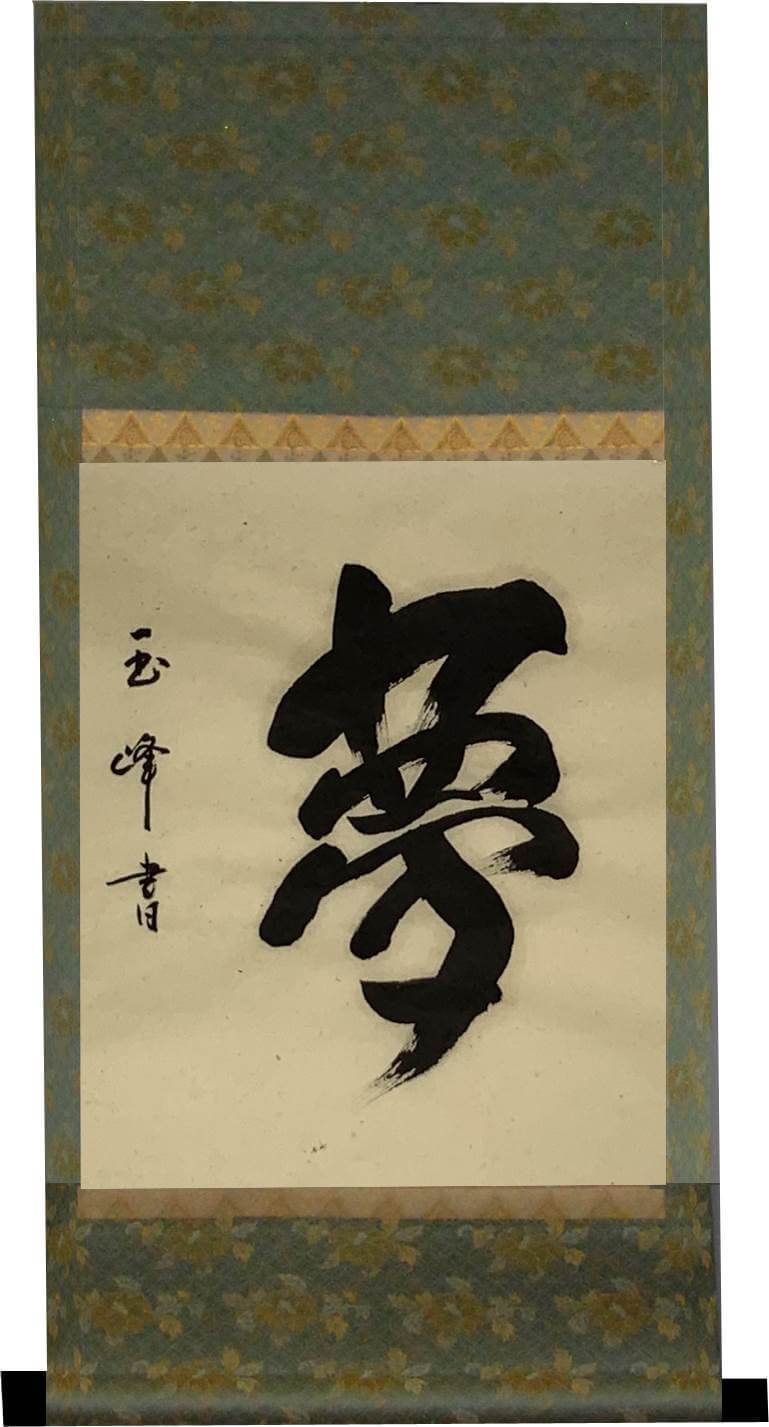 夢
玉峰書